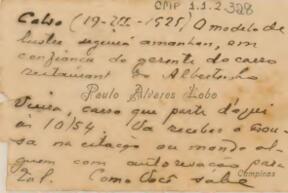 CMP 1.1.2.328
Calso (19-VII-1925) O modelo de
lustre seguirá amanhan, em
confiança do gerente do carro
restaurant Sr Albertinho
Paulo Alvares Lobo
Vieira, carro que parte d'aqui
ás 10/54 Va receber a
sa na estação ou mande al-
guem com autorisação para
tal. Como Você sabe
Campinas